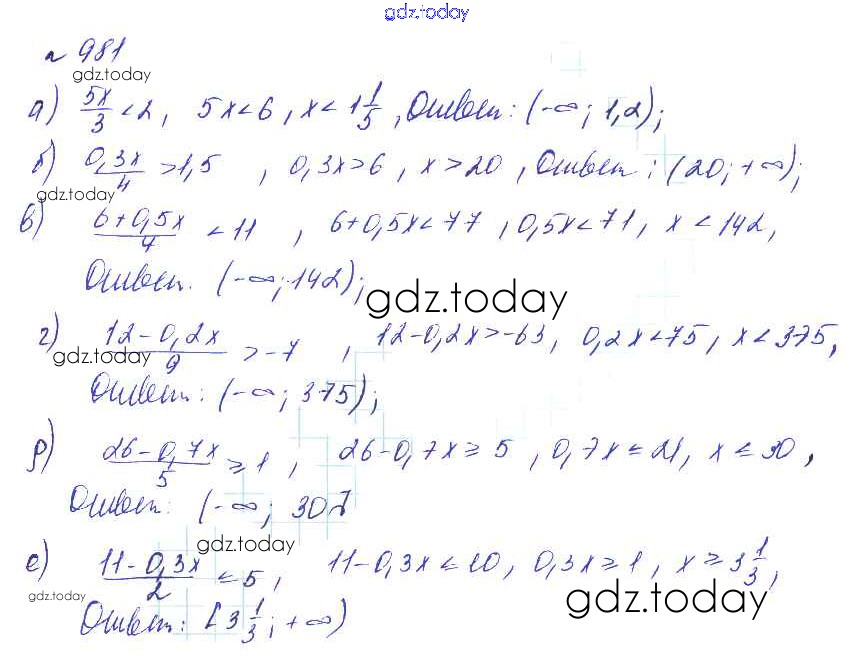 gdz.today
№ 981
gdz.today
а) 5x/3 < 2, 5x < 6, x < 1 1/5, Ответ: (-∞; 1,2);
б) 0,3x/4 > 1,5, 0,3x > 6, x > 20, Ответ: (20; +∞);
gdz.today
в) 6+0,5x/7 < 11, 6+0,5x < 77, 0,5x < 71, x < 142,
Ответ. (-∞; 142);
gdz.today
г) 12-0,2x/9 > -7, 12-0,2x > -63, 0,2x < 75, x < 375,
gdz.today
Ответ: (-∞; 375);
д) 26-0,7x/5 ≥ 1, 26-0,7x ≥ 5, 0,7x ≤ 21, x ≤ 30,
Ответ: (-∞; 30]
gdz.today
е) 11-0,3x/2 ≤ 5, 11-0,3x ≤ 10, 0,3x ≥ 1, x ≥ 3 1/3,
gdz.today
gdz.today
Ответ: [3 1/3; +∞)